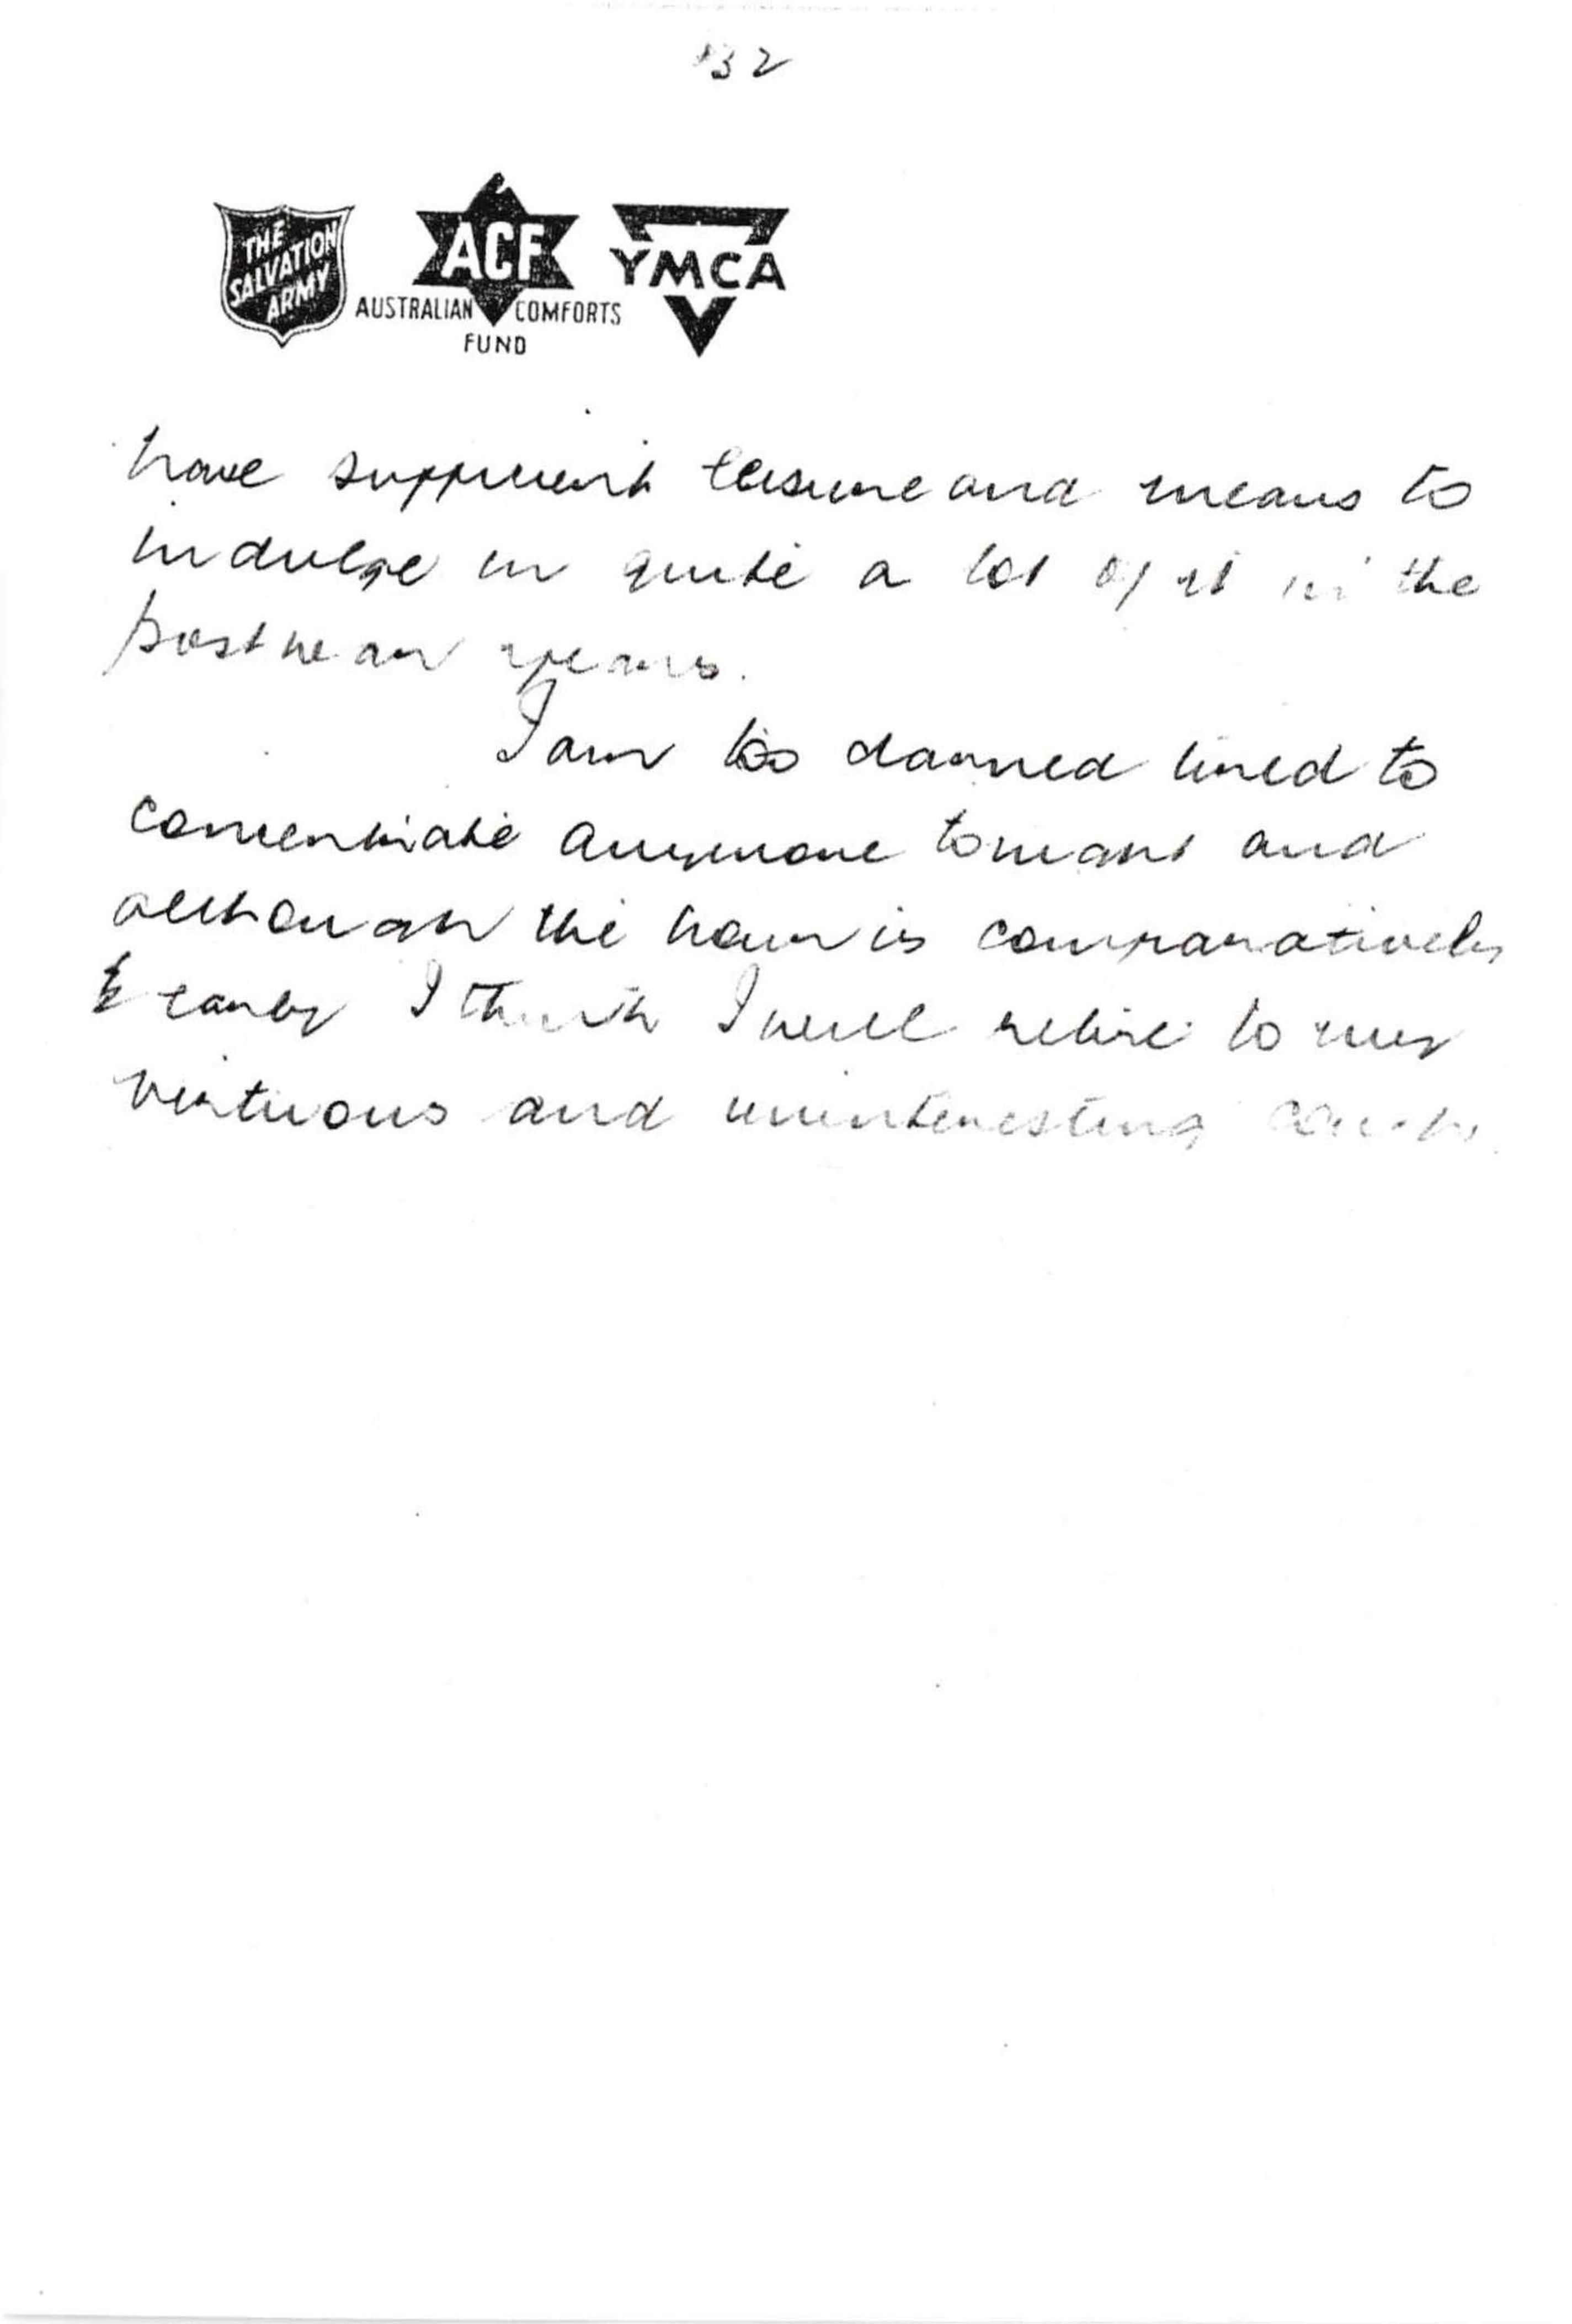 32
THE SALVATION ARMY
ACF
AUSTRALIAN COMFORTS
FUND
YMCA
have sufficient leisure and means to
indulge in quite a lot of it in the
post war years.
I am too damned tired to
concentrate anymore tonight and
although the hour is comparatively
early I think I will retire to my
virtuous and uninteresting couch.